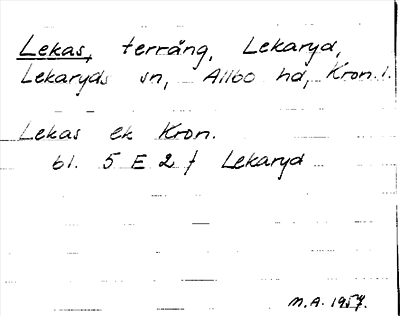 Lekas, terräng, Lekaryd,
Lekaryds sn, Allbo hd, Kron.l.
Lekas ek Kron.
bl. 5 E 2 f Lekaryd
M.A. 1957.